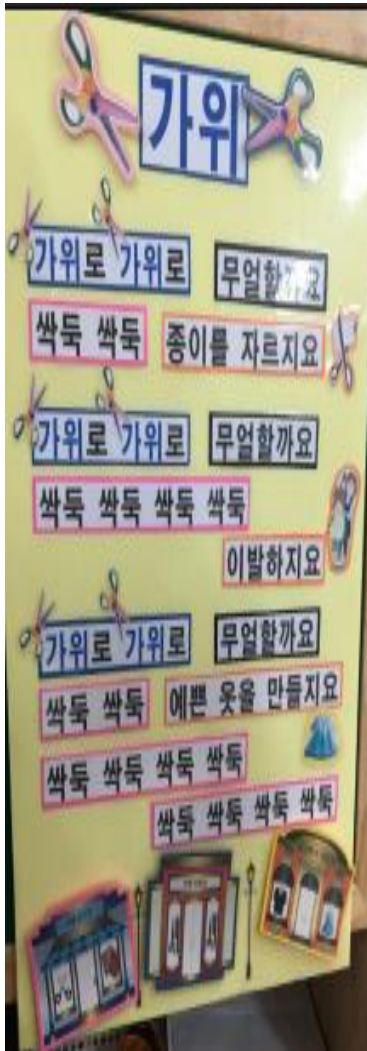 가위
가위로 가위로 무얼할까요
싹둑 싹둑 종이를 자르지요
가위로 가위로 무얼할까요
싹둑 싹둑 싹둑 싹둑
이발하지요
가위로 가위로 무얼할까요
싹둑 싹둑 예쁜 옷을 만들지요
싹둑 싹둑 싹둑 싹둑
싹둑 싹둑 싹둑 싹둑